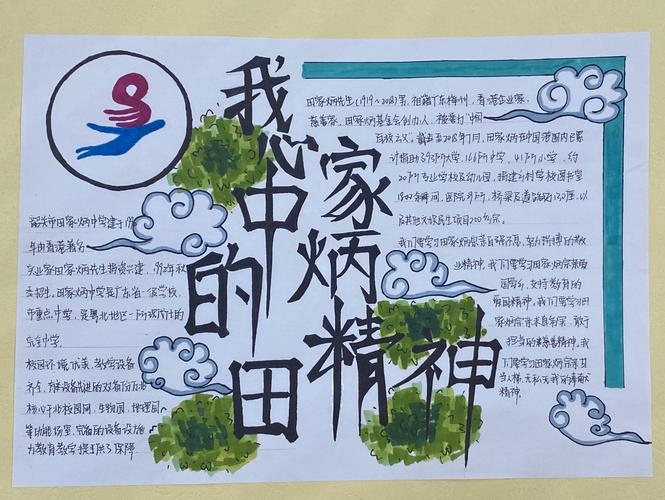 我心中的田
家炳精神
韶关市田家炳中学建于19
年由香港著名
实业家田家炳先生捐资兴建，1992年秋
季招生。田家炳中学是广东省一级学校，
市重点中学，是粤北地区一所现代化的
完全中学。
校园环境优美，教学设备
齐全，
校园网，生物园，地理园
等功能场室，完备的设备设施
为教育教学提供了保障
田家炳先生（1919～2018）男，祖籍广东梅州，香港企业家，
慈善家，田家炳基金会创办人，被誉为“中国
百校之父”。截至2018年7月，田家炳在中国范围内已累
计捐助93所大学，166所中学，41所小学，约
20所专业学校及幼儿园，捐建乡村学校图书室
1800余间，医院29所，桥梁及道路近130座，以
及其他文娱民生项目200多宗。
我们要学习田家炳宗亲自强不息，努力拼搏的敬
业精神，我们要学习田家炳宗亲热爱
国家，支持教育的
爱国精神，我们要学习田
家炳宗亲乐善好施，敢于
担当的慈善精神，我
们要学习田家炳宗亲甘
当人梯，无私忘我的奉献
精神。